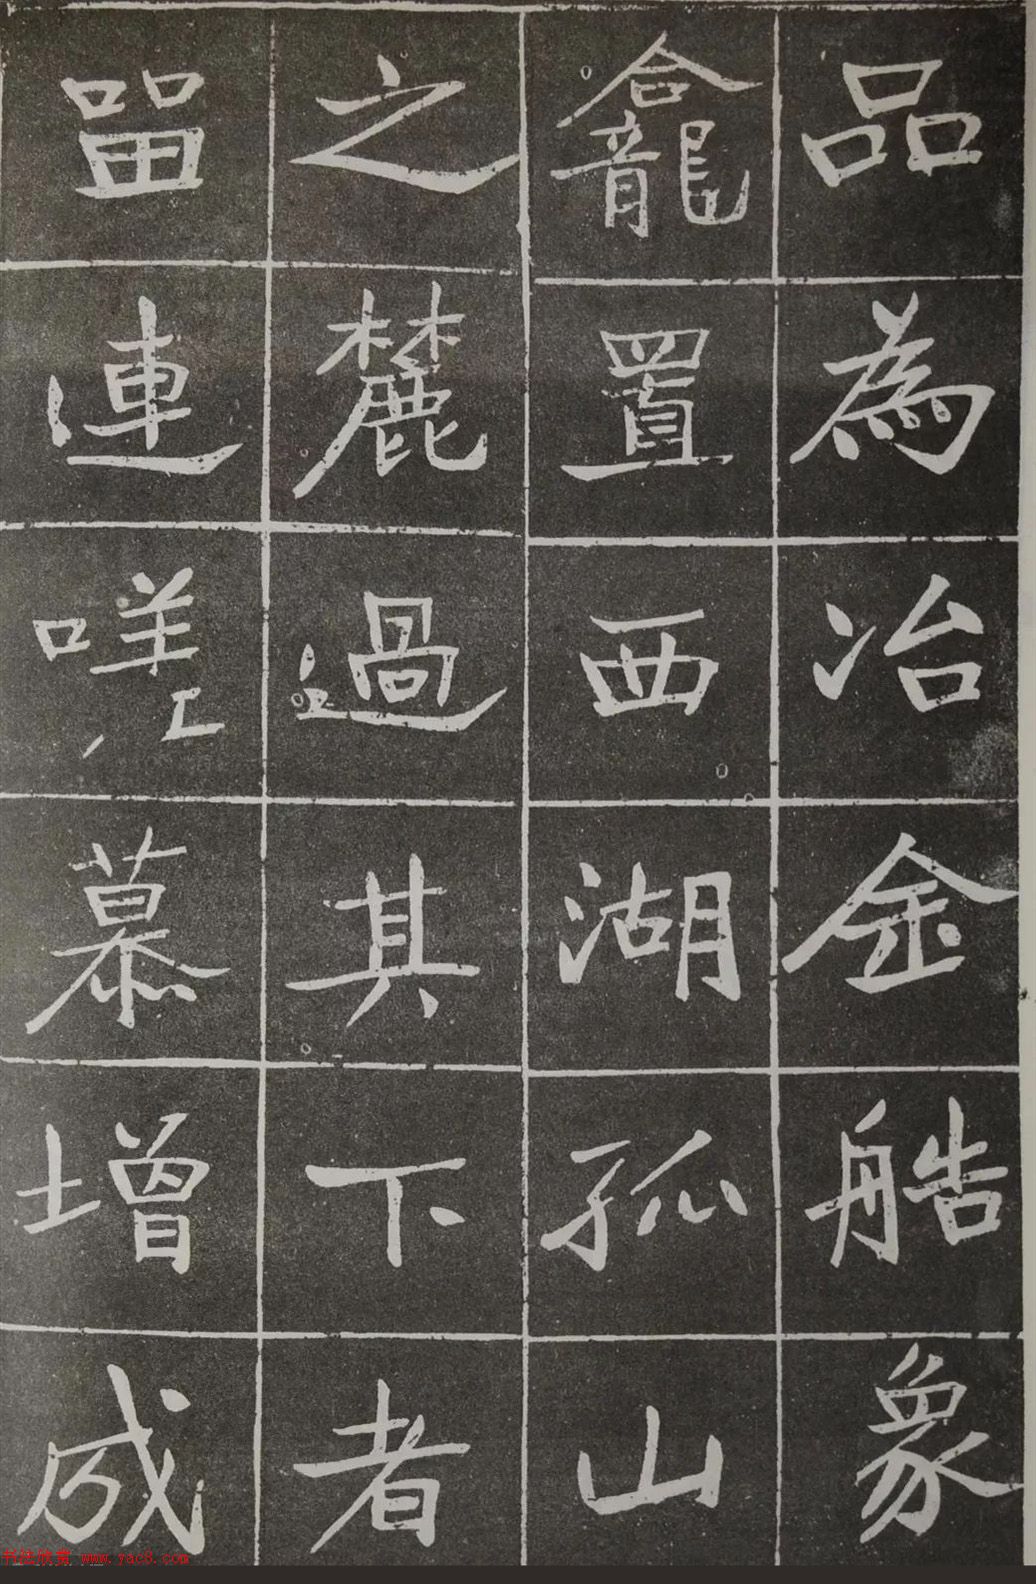 品為冶金艁象
龕置西湖孤山
之麓過其下者
畱連嘆慕增成
书法欣赏 www.yac8.com